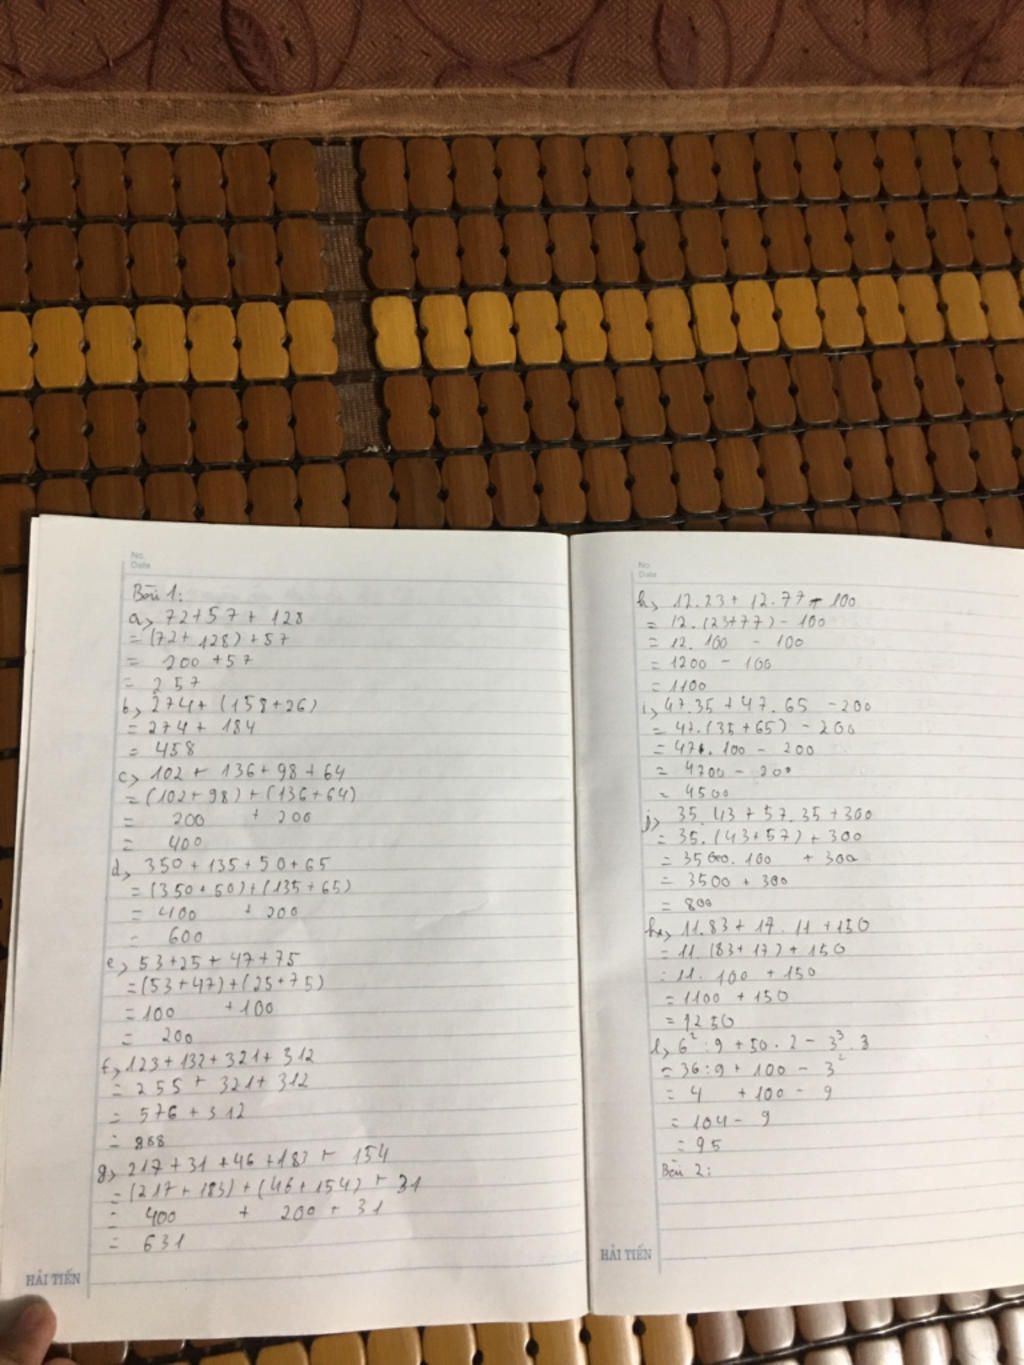 No.
Date
Bài 1:
a, 72+57+128
= (72+128)+57
= 200+57
= 257
b, 274+(158+26)
= 274+184
= 458
c, 102+136+98+64
= (102+98)+(136+64)
= 200 + 200
= 400
d, 350+135+50+65
= (350+50)+(135+65)
= 400 + 200
= 600
e, 53+25+47+75
= (53+47)+(25+75)
= 100 + 100
= 200
f, 123+132+321+312
= 255+321+312
= 576+312
= 888
g, 217+31+46+183+154
= (217+183)+(46+154)+31
= 400 + 200 + 31
= 631
HẢI TIẾN
No.
Date
h, 12.23+12.77-100
= 12.(23+77)-100
= 12.100 - 100
= 1200 - 100
= 1100
i, 47.35+47.65-200
= 47.(35+65)-200
= 47.100-200
= 4700-200
= 4500
j, 35.43+57.35+300
= 35.(43+57)+300
= 3500.100 + 300
= 3500+300
= 800
k, 11.83+17.11+150
= 11.(83+17)+150
= 11.100+150
= 1100+150
= 1250
l, 6²:9+50.2-3³.3
= 36:9+100-3²
= 4 +100-9
= 104-9
= 95
Bài 2:
HẢI TIẾN